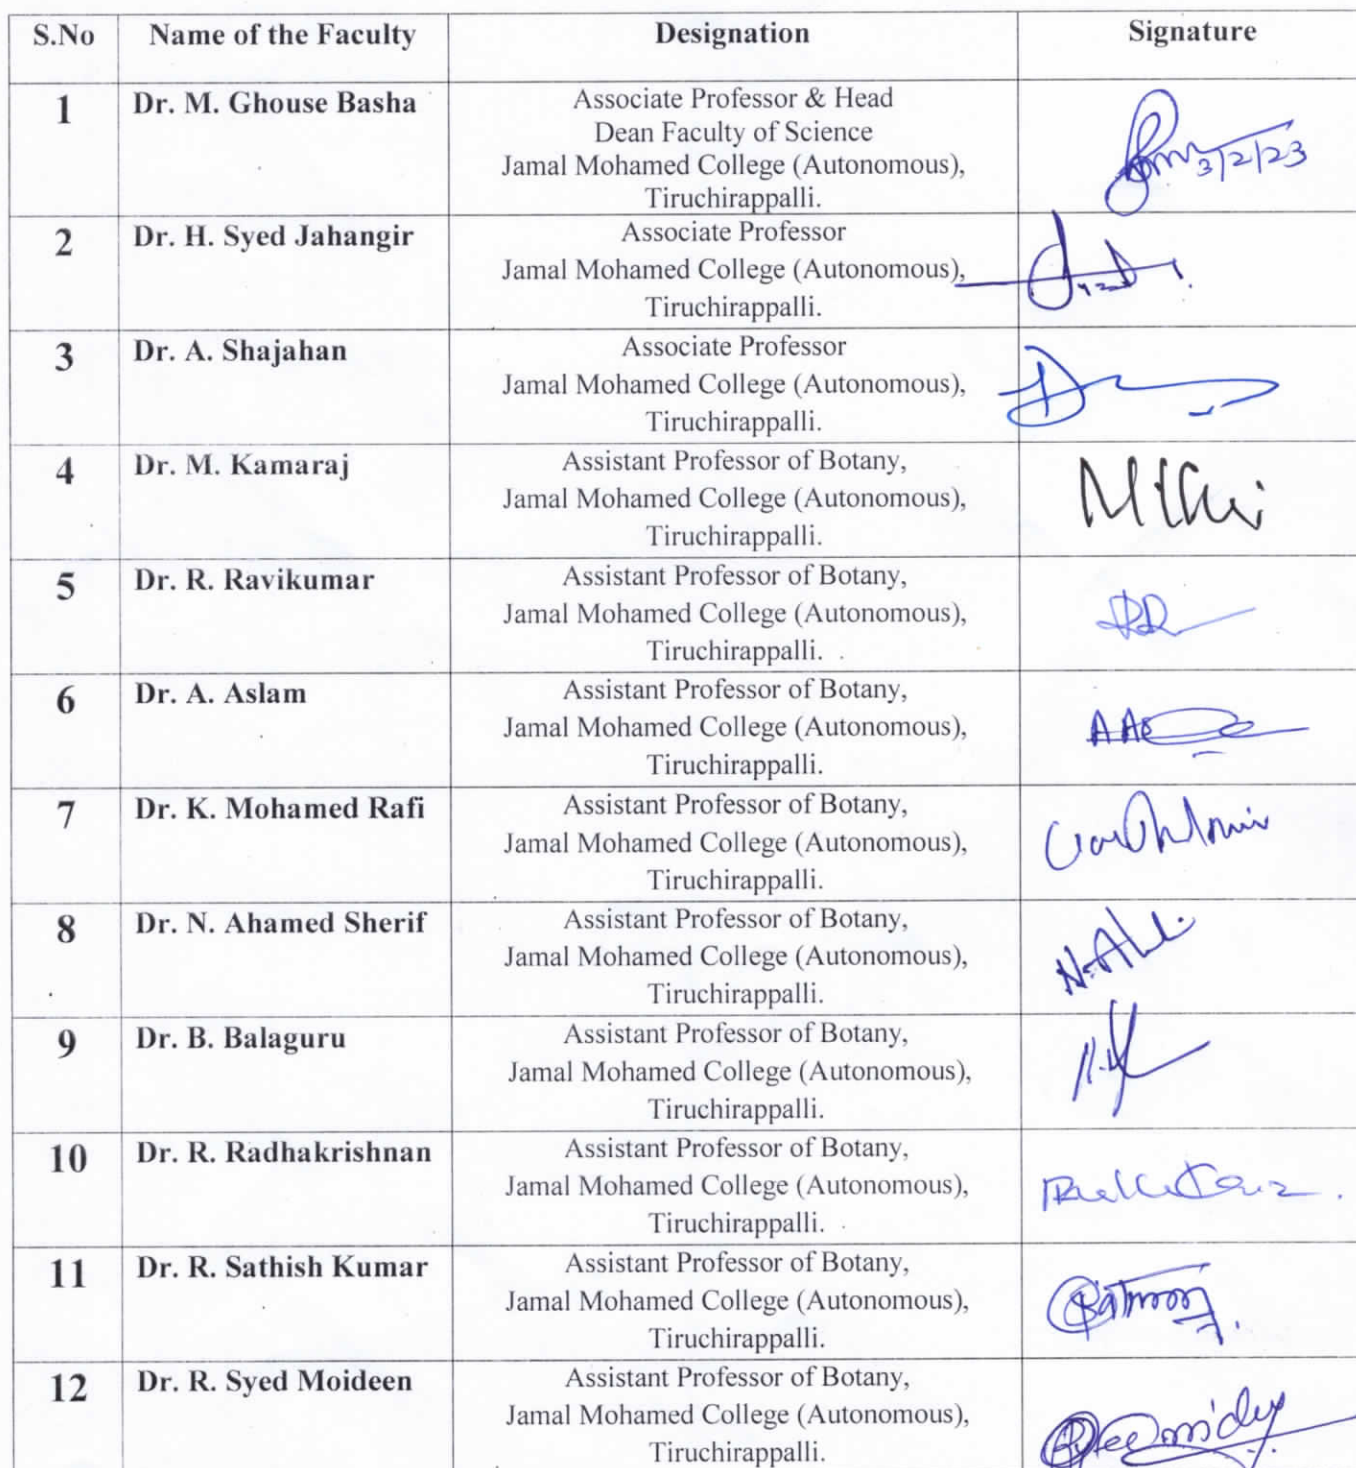 S.No Name of the Faculty Designation Signature
1 Dr. M. Ghouse Basha Associate Professor & Head
Dean Faculty of Science
Jamal Mohamed College (Autonomous),
Tiruchirappalli.
3/2/23
2 Dr. H. Syed Jahangir Associate Professor
Jamal Mohamed College (Autonomous),
Tiruchirappalli.
3 Dr. A. Shajahan Associate Professor
Jamal Mohamed College (Autonomous),
Tiruchirappalli.
4 Dr. M. Kamaraj Assistant Professor of Botany,
Jamal Mohamed College (Autonomous),
Tiruchirappalli.
5 Dr. R. Ravikumar Assistant Professor of Botany,
Jamal Mohamed College (Autonomous),
Tiruchirappalli.
6 Dr. A. Aslam Assistant Professor of Botany,
Jamal Mohamed College (Autonomous),
Tiruchirappalli.
7 Dr. K. Mohamed Rafi Assistant Professor of Botany,
Jamal Mohamed College (Autonomous),
Tiruchirappalli.
8 Dr. N. Ahamed Sherif Assistant Professor of Botany,
Jamal Mohamed College (Autonomous),
Tiruchirappalli.
9 Dr. B. Balaguru Assistant Professor of Botany,
Jamal Mohamed College (Autonomous),
Tiruchirappalli.
10 Dr. R. Radhakrishnan Assistant Professor of Botany,
Jamal Mohamed College (Autonomous),
Tiruchirappalli.
11 Dr. R. Sathish Kumar Assistant Professor of Botany,
Jamal Mohamed College (Autonomous),
Tiruchirappalli.
12 Dr. R. Syed Moideen Assistant Professor of Botany,
Jamal Mohamed College (Autonomous),
Tiruchirappalli.